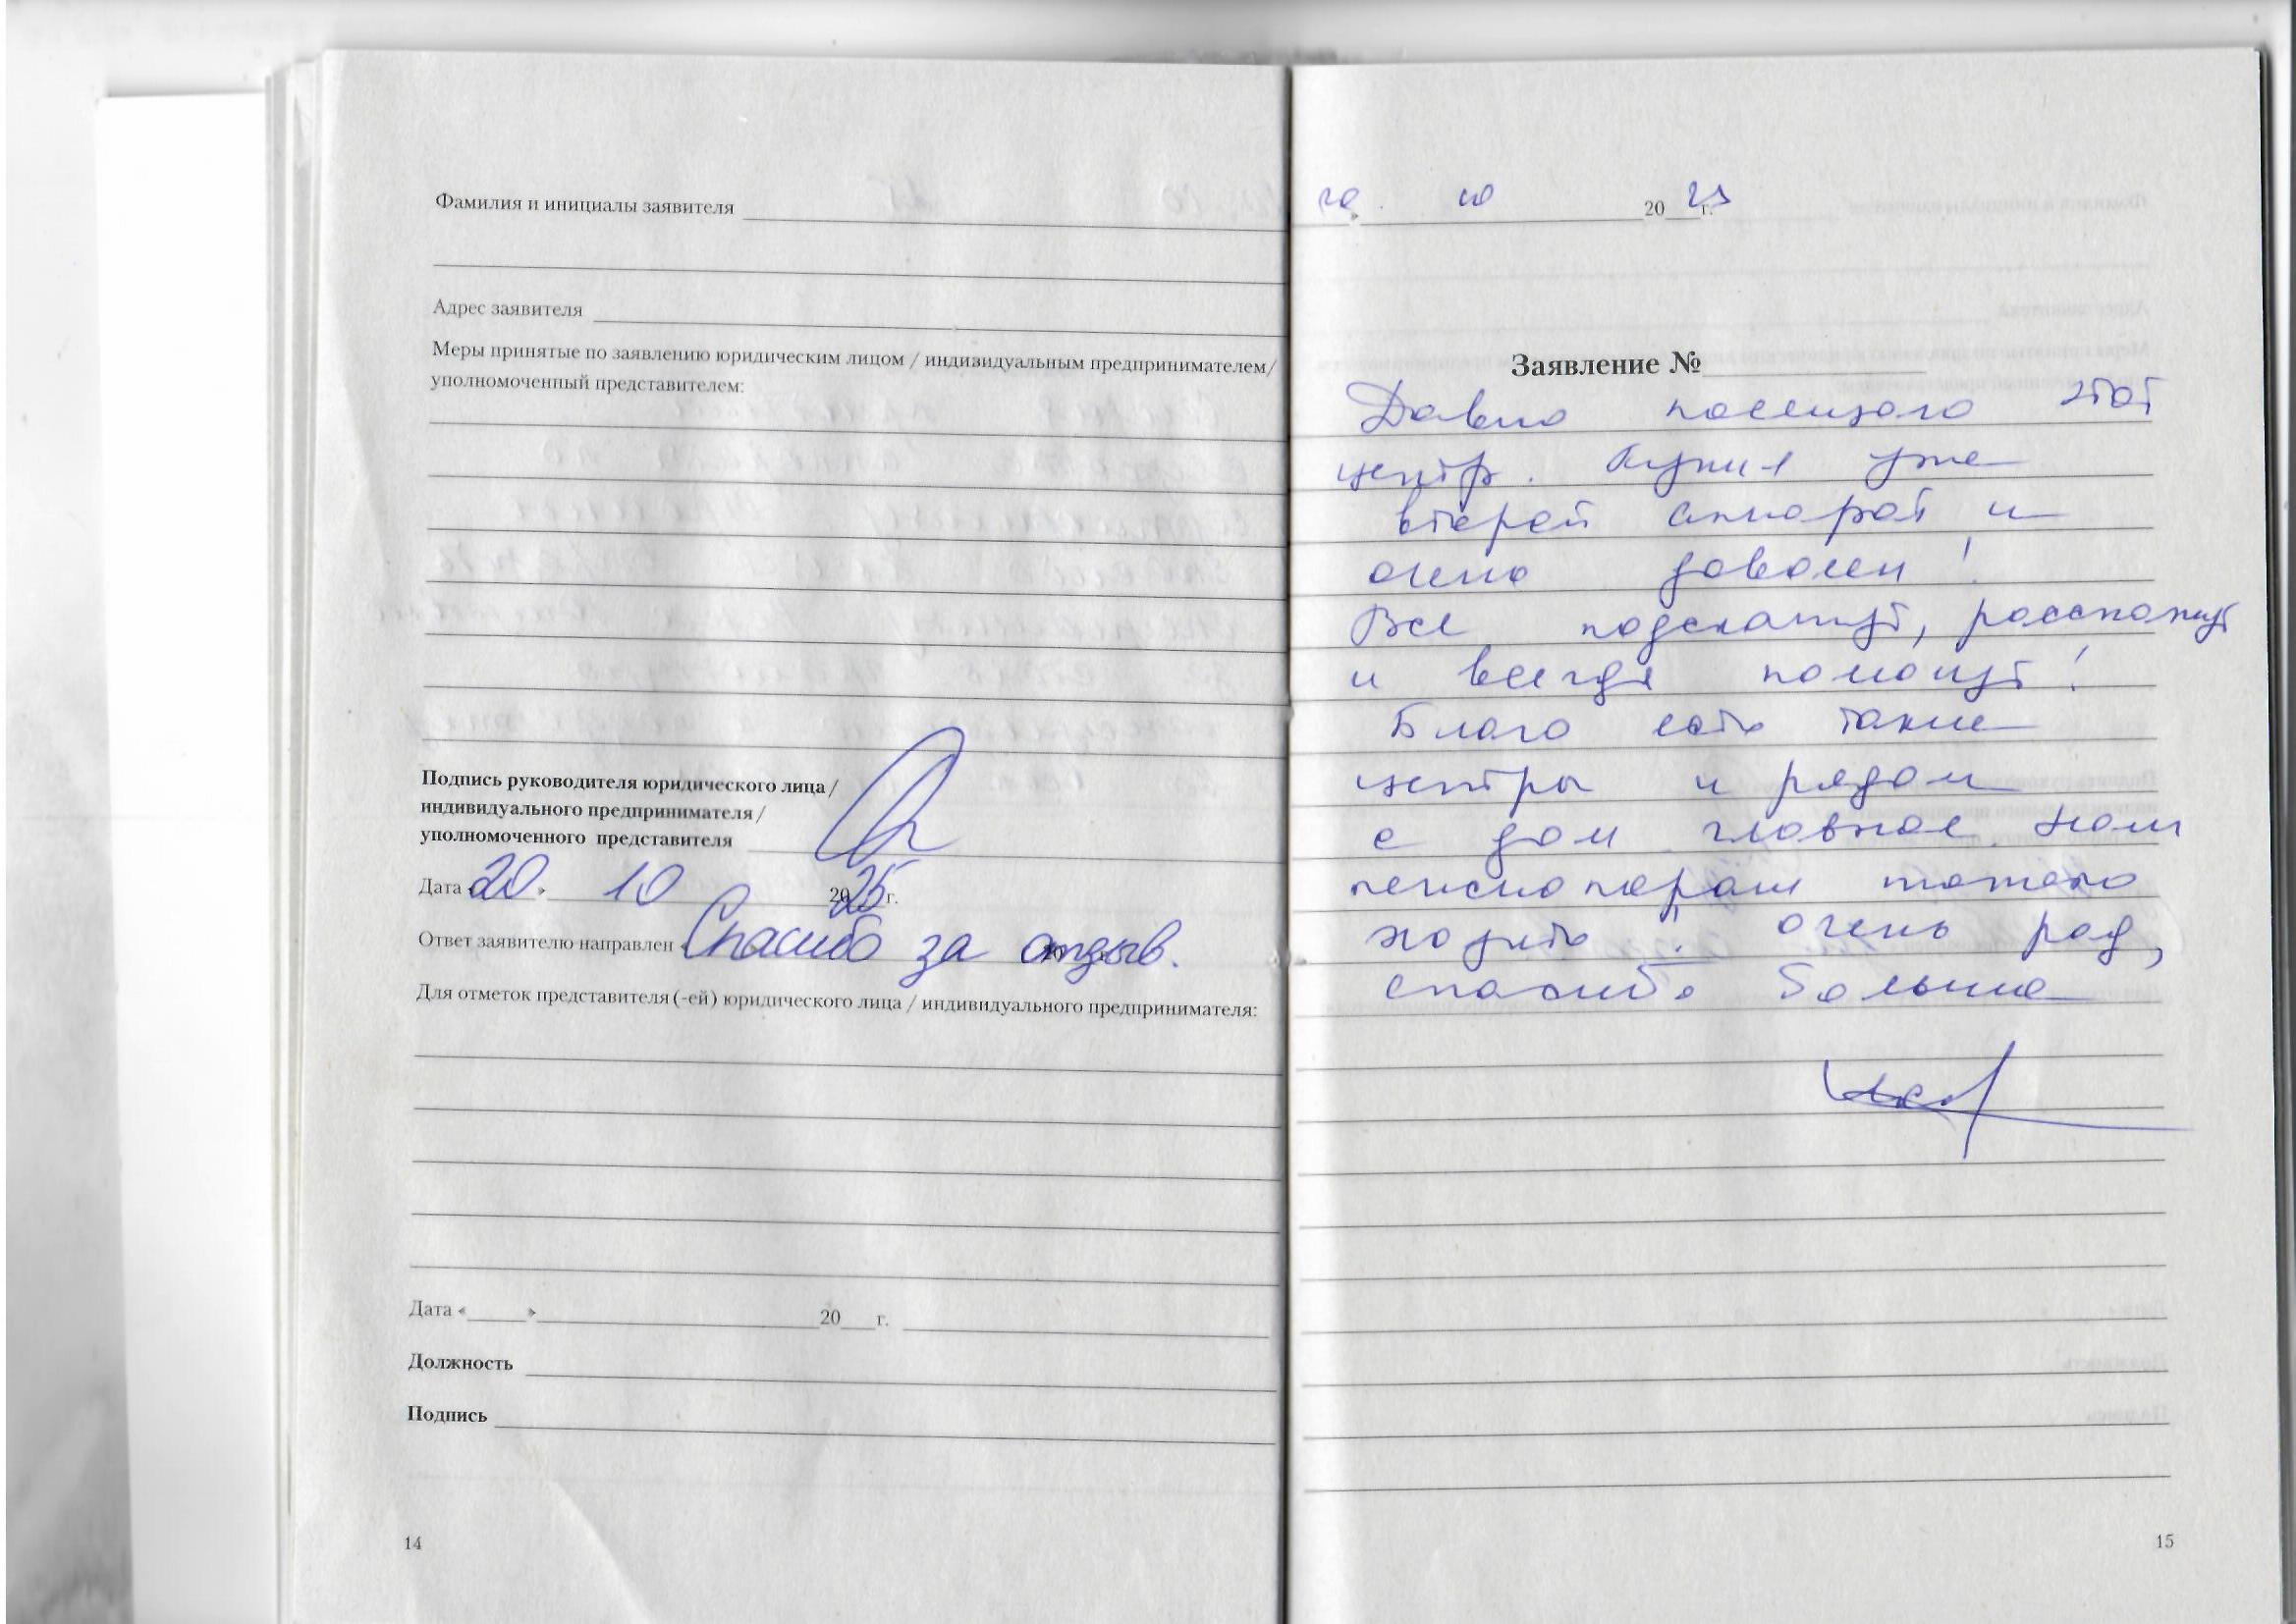 Фамилия и инициалы заявителя
Адрес заявителя
Меры принятые по заявлению юридическим лицом / индивидуальным предпринимателем/
уполномоченный представителем:
Подпись руководителя юридического лица /
индивидуального предпринимателя /
уполномоченного представителя
Дата «20» 10 2025г.
Ответ заявителю направлен « Спасибо за отзыв.
Для отметок представителя (-ей) юридического лица / индивидуального предпринимателя:
Дата «____»____ 20__г.
Должность
Подпись
14
20» 10 20 г.
Заявление №
Давно посещаю этот
центр. Купил уже
второй аппарат и
очень доволен!
Все подскажут, расскажут
и всегда помогут!
Благо есть такие
центры и рядом
с дом главное нам
пенсионерам тяжело
ходить очень рад,
спасибо большое
15